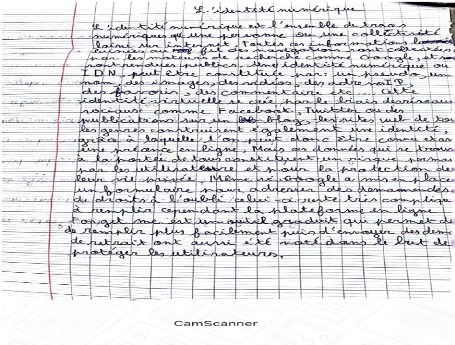 L'identité numérique
L'identité numérique est l'ensemble de traces
numériques qu'une personne ou une collectivité
laisse sur internet. Toutes ces informations
au fil des navigations sont collectées
par les moteurs de recherche comme Google, et
sont rendues publics. Une identité numérique ou
I.D.N, peut être constituée par : un pseudo, un
nom, des images, des vidéos, des adresses IP,
des favoris, des commentaires etc. Cette
identité virtuelle se crée, par le biais des réseaux
sociaux comme Facebook, Twitter ou des
publications sur un blog, les sites web de tous
les genres construisent également une identité,
grâce à laquelle l'on peut donc être comme étant
une personne en ligne. Mais ces données qui se trouve
à la portée de tous constituent un risque
par les utilisateurs et pour la protection de
leur vie privée. Même si Google a mis en place
un formulaire pour adresser des demandes
de droits à l'oubli celui-ci reste très complexe
à remplir cependant la plateforme en ligne
Forget me est un outil gratuit qui permet de
de remplir plus facilement puis d'envoyer des
de retrait ont aussi été noté dans le but de
protéger les utilisateurs.
CamScanner